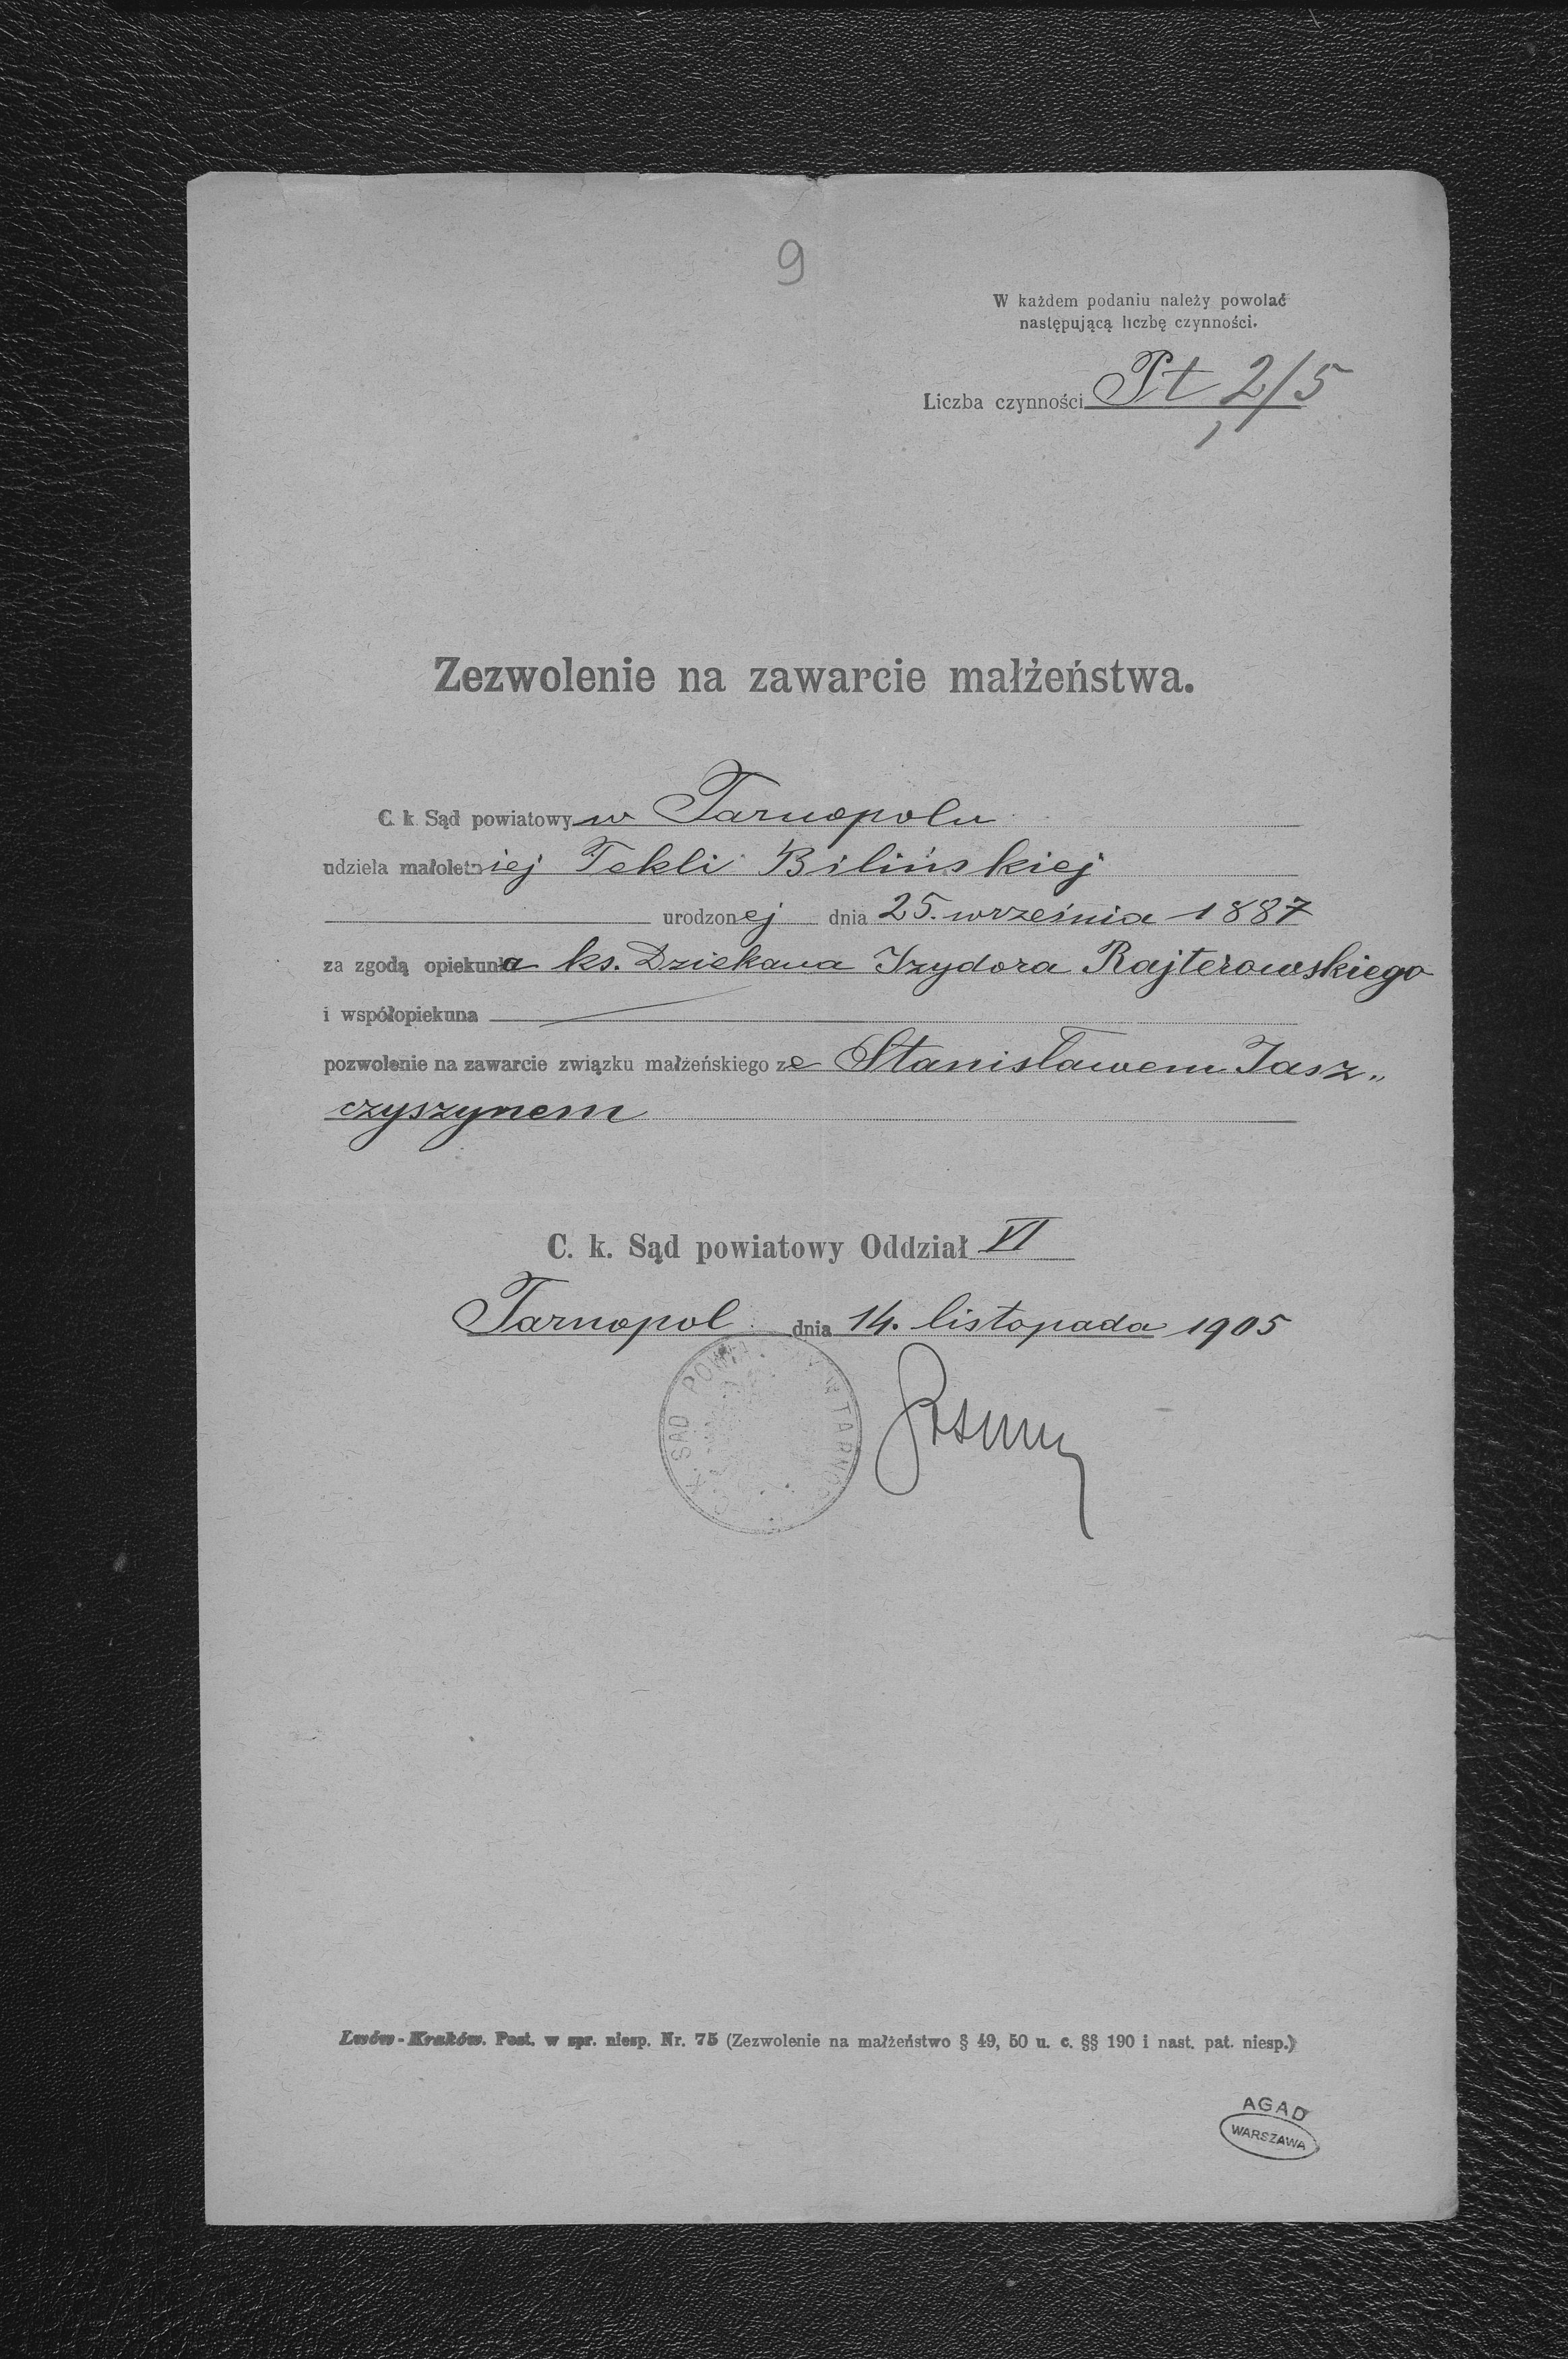 9
W każdem podaniu należy powołać
następującą liczbę czynności.
Liczba czynności Pt 2/5
Zezwolenie na zawarcie małżeństwa.
C. k. Sąd powiatowy w Tarnopolu
udziela małoletniej Tekli Bilińskiej
urodzonej dnia 25. września 1887
za zgodą opiekuna ks. Dziekana Izydora Rajterowskiego
i współopiekuna
pozwolenie na zawarcie związku małżeńskiego ze Stanisławem Jasz„
czyszynem
C. k. Sąd powiatowy Oddział VI
Tarnopol dnia 14. listopada 1905
C. K. SĄD POWIA
W TARNOP
Lwów - Kraków. Post. w spr. niesp. Nr. 75 (Zezwolenie na małżeństwo § 49, 50 u. c. §§ 190 i nast. pat. niesp.)
AGAD
WARSZAWA